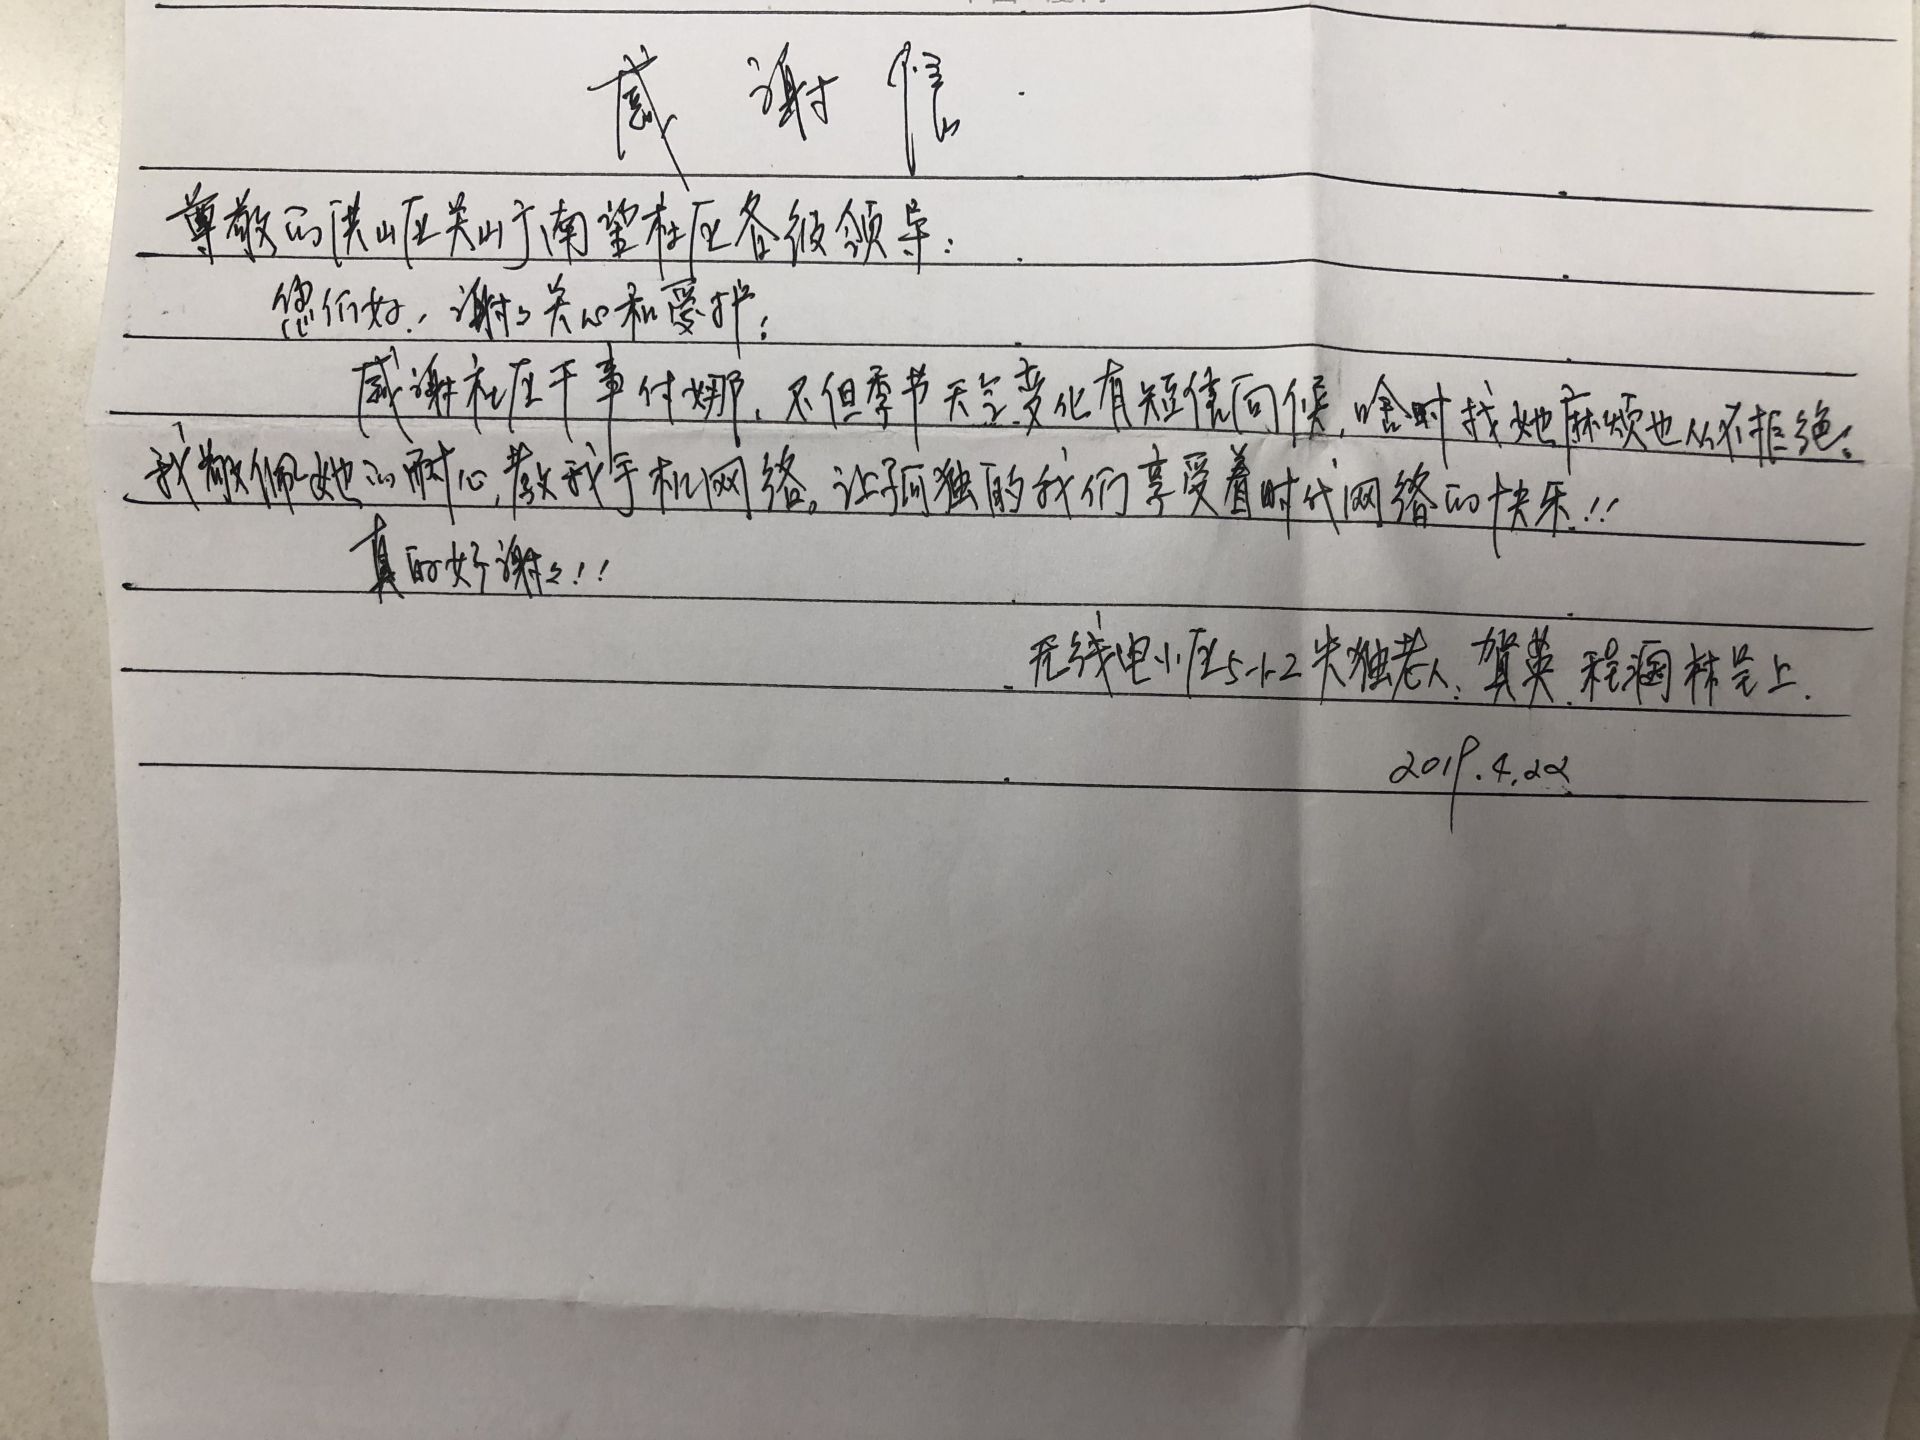 感谢信
尊敬的洪山区关山于南望社区各级领导:
您们好!谢谢关心和爱护!
感谢社区干事付娜,不但季节天气变化有短信问候,啥时找她麻烦也从不拒绝。
我敬佩她的耐心,教我手机网络。让孤独的我们享受着时代网络的快乐!!
真的好谢谢!!
无线电小区5-1-2失独老人:贺英 程 林呈上.
2019.4.22